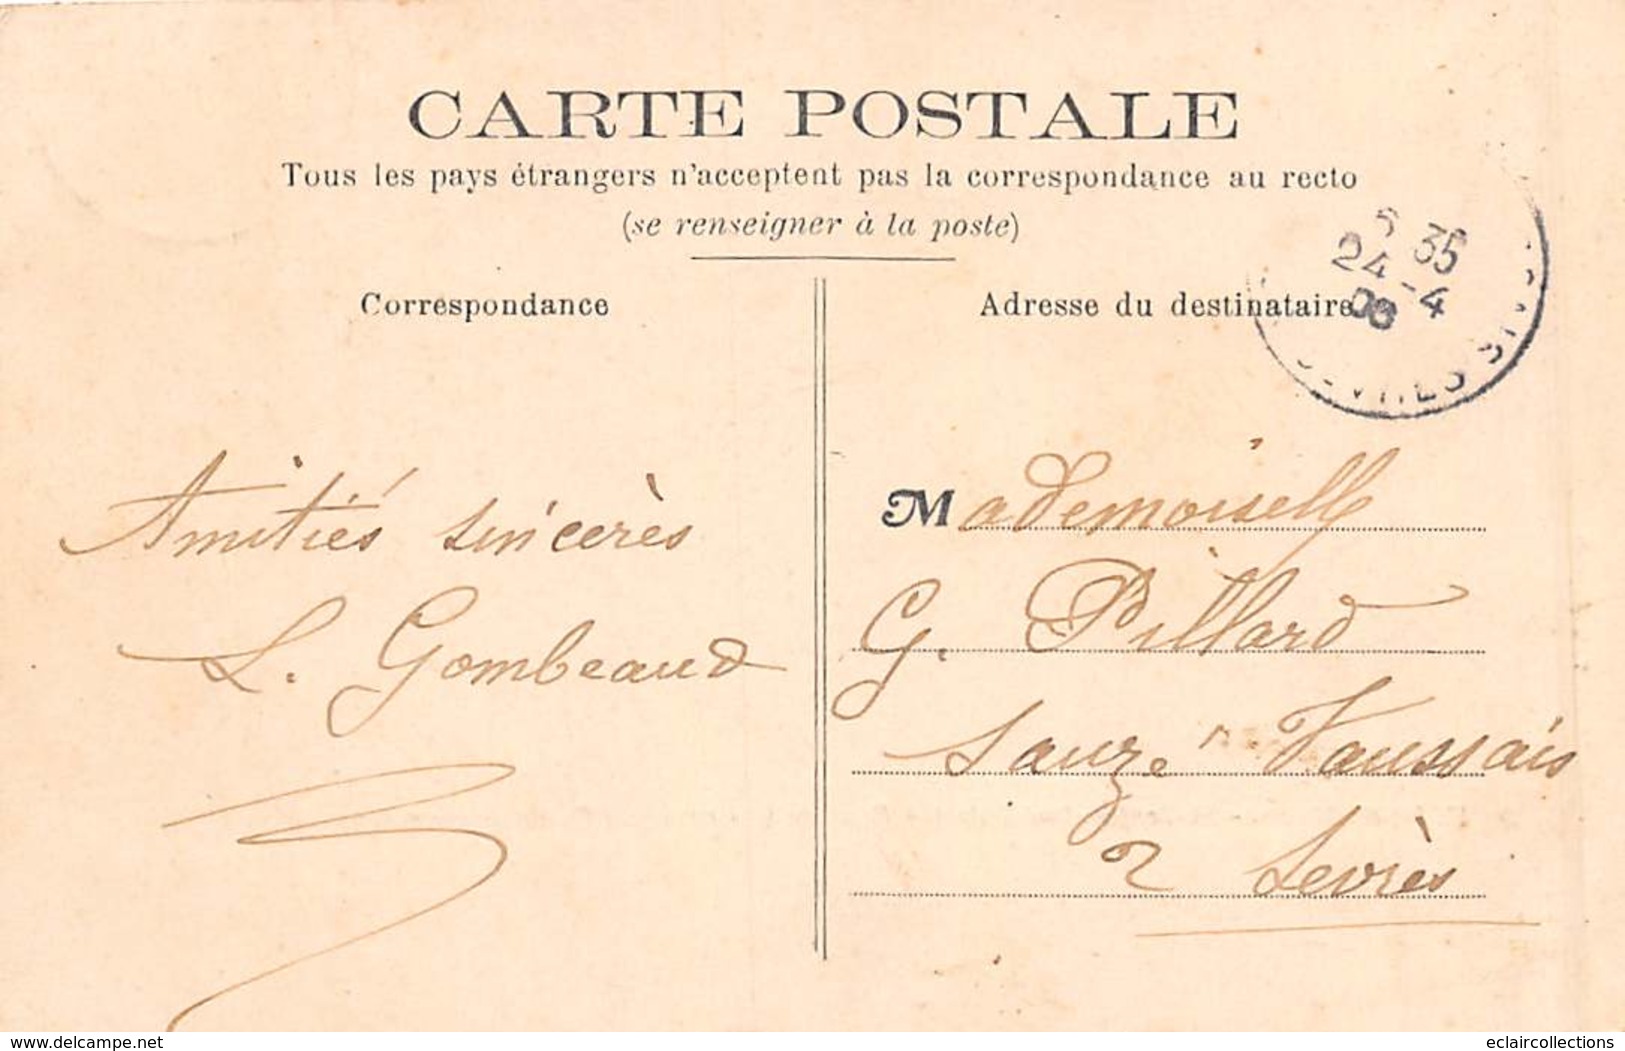 CARTE POSTALE
Tous les pays étrangers n'acceptent pas la correspondance au recto
(se renseigner à la poste)
Correspondance
Adresse du destinataire
35
24 -4
08
Amitiés sincerès
L. Gombeaud
Mademoiselle
G. Pillard
Sauzé Vaussais
2 Sevrès
www.delcampe.net
eclaircollections